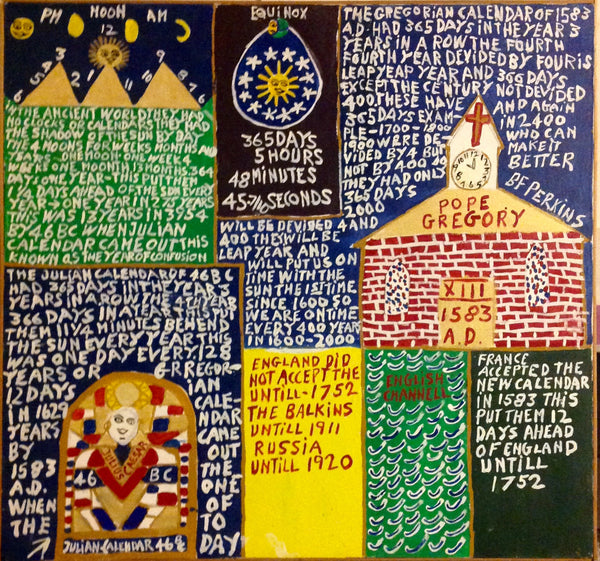 PM NOON AM
12
6 5 4 3 2 1 11 10 9 8 7 6
IN THE ANCIENT WORLD THEY HAD
NO CLOCKS OR CALENDARS THEY HAD
THE SHADOW OF THE SUN BY DAY
THE 4 MOONS FOR WEEKS MONTHS AND
YEARS - ONE MOON ONE WEEK 4
WEEKS MONTH 13 MONTHS. 364
DAYS ONE YEAR THIS PUT THEM
1 1/4 DAYS AHEAD OF THE SUN EVERY
YEAR - ONE YEAR IN 275 YEARS
THIS WAS 13 YEARS IN 3954
BY 46 BC WHEN JULIAN
CALENDAR CAME OUT THIS
KNOWN AS THE YEAR OF CONFUSION
EQUINOX
365 DAYS
5 HOURS
48 MINUTES
45-7/10 SECONDS
THE GREGORIAN CALENDAR OF 1583
A.D. HAD 365 DAYS IN THE YEAR 3
YEARS IN A ROW THE FOURTH
FOURTH YEAR DEVIDED BY FOUR IS
LEAP YEAP YEAR AND 366 DAYS
EXCEPT THE CENTURY NOT DEVIDED
400 THESE HAVE AND AGAIN
365 DAYS EXAM- IN 2400
PLE - 1700 - 1800 WHO CAN
1900 WERE DE- MAKE IT
VIDED BY 4 BUT BETTER
NOT BY 400 SO
THEY HAD ONLY
365 DAYS
2000
BF PERKINS
WILL BE DEVIDED 4 AND
400 THEY WILL BE
LEAP YEAR AND
WILL PUT US ON
TIME WITH THE
SUN THE 1ST TIME
SINCE 1600 SO
WE ARE ON TIME
EVERY 400 YEAR
IN 1600-2000
12 11 10 9 8 7 6 5 4 3 2 1
POPE
GREGORY
XIII
1583
A.D.
THE JULIAN CALENDAR OF 46 BC
HAD 365 DAYS IN THE YEAR 3
YEARS IN A ROW THE 4TH YEAR
366 DAYS IN A YEAR THIS PUT
THEM 11 1/4 MINUTES BEHEN
THE SUN EVERY YEAR THIS
WAS ONE DAY EVERY 128
YEARS OR
12 DAYS
IN 1629
YEARS
BY
1583
A.D.
WHEN
THE
GRREGOR-
IAN
CALE-
NDAR
CAME
OUT
THE
ONE
OF
TO
DAY
JULIUS CAESAR
46 BC
JULIAN CALENDAR 46 BC
ENGLAND DID
NOT ACCEPT THE
UNTILL - 1752
THE BALKINS
UNTILL 1911
RUSSIA
UNTILL 1920
ENGLISH
CHANNELL
FRANCE
ACCEPTED THE
NEW CALENDAR
IN 1583 THIS
PUT THEM 12
DAYS AHEAD
OF ENGLAND
UNTILL
1752